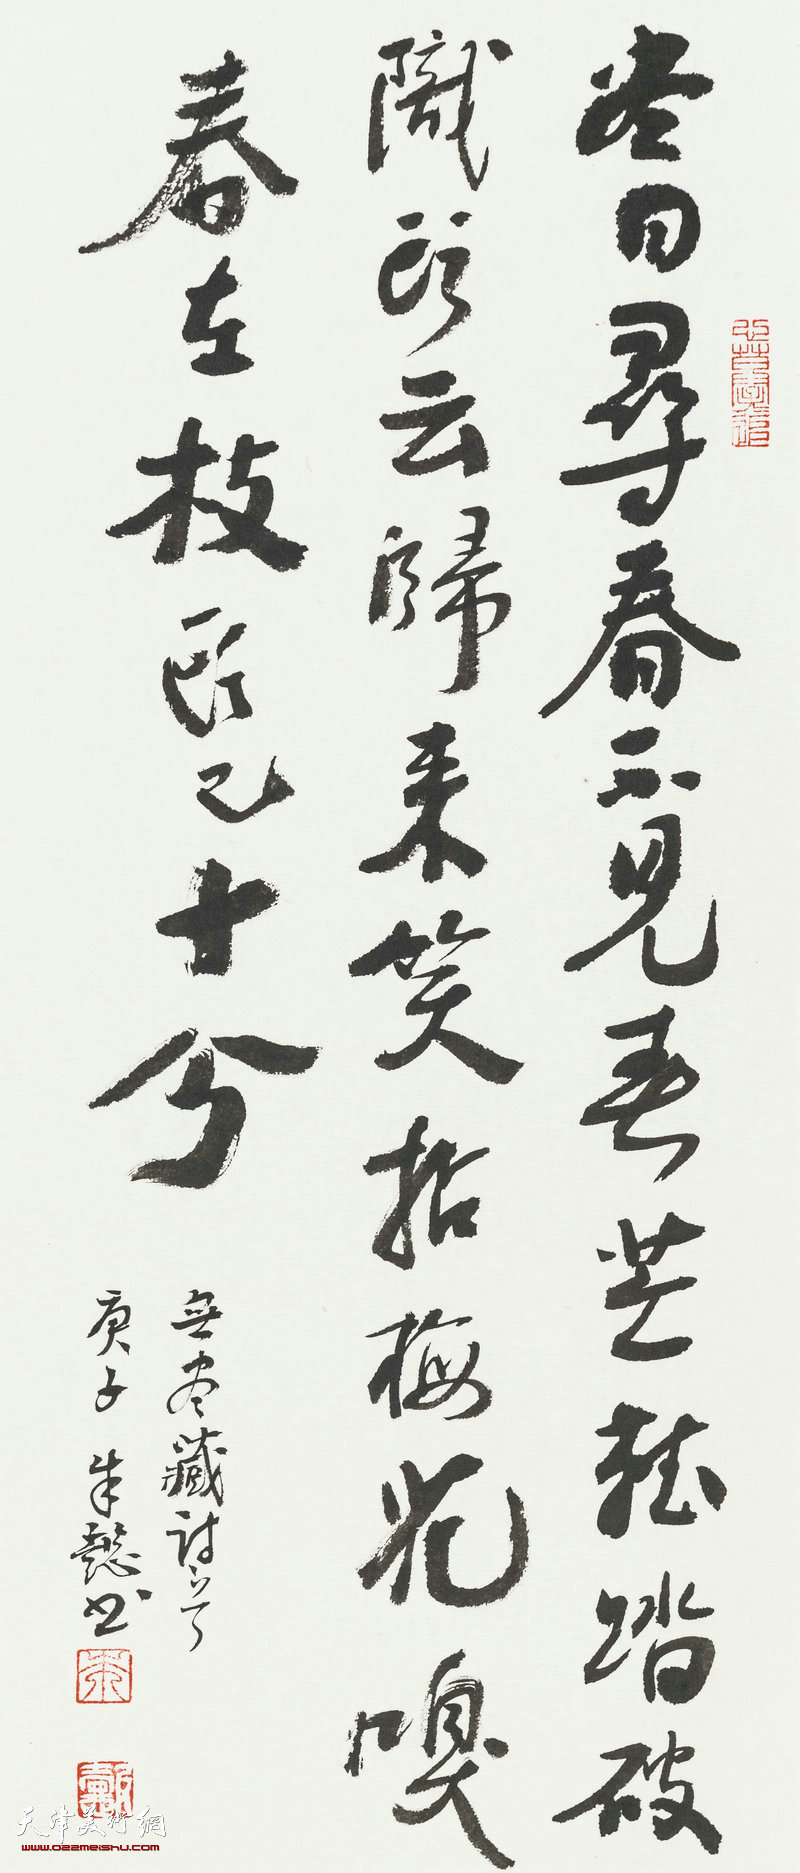 尽日尋春不見春芒鞋踏破
隴頭云歸来笑拈梅花嗅
春在枝頭已十分
無尽藏詩
庚子朱懿书
天津美术網
www.022meishu.com